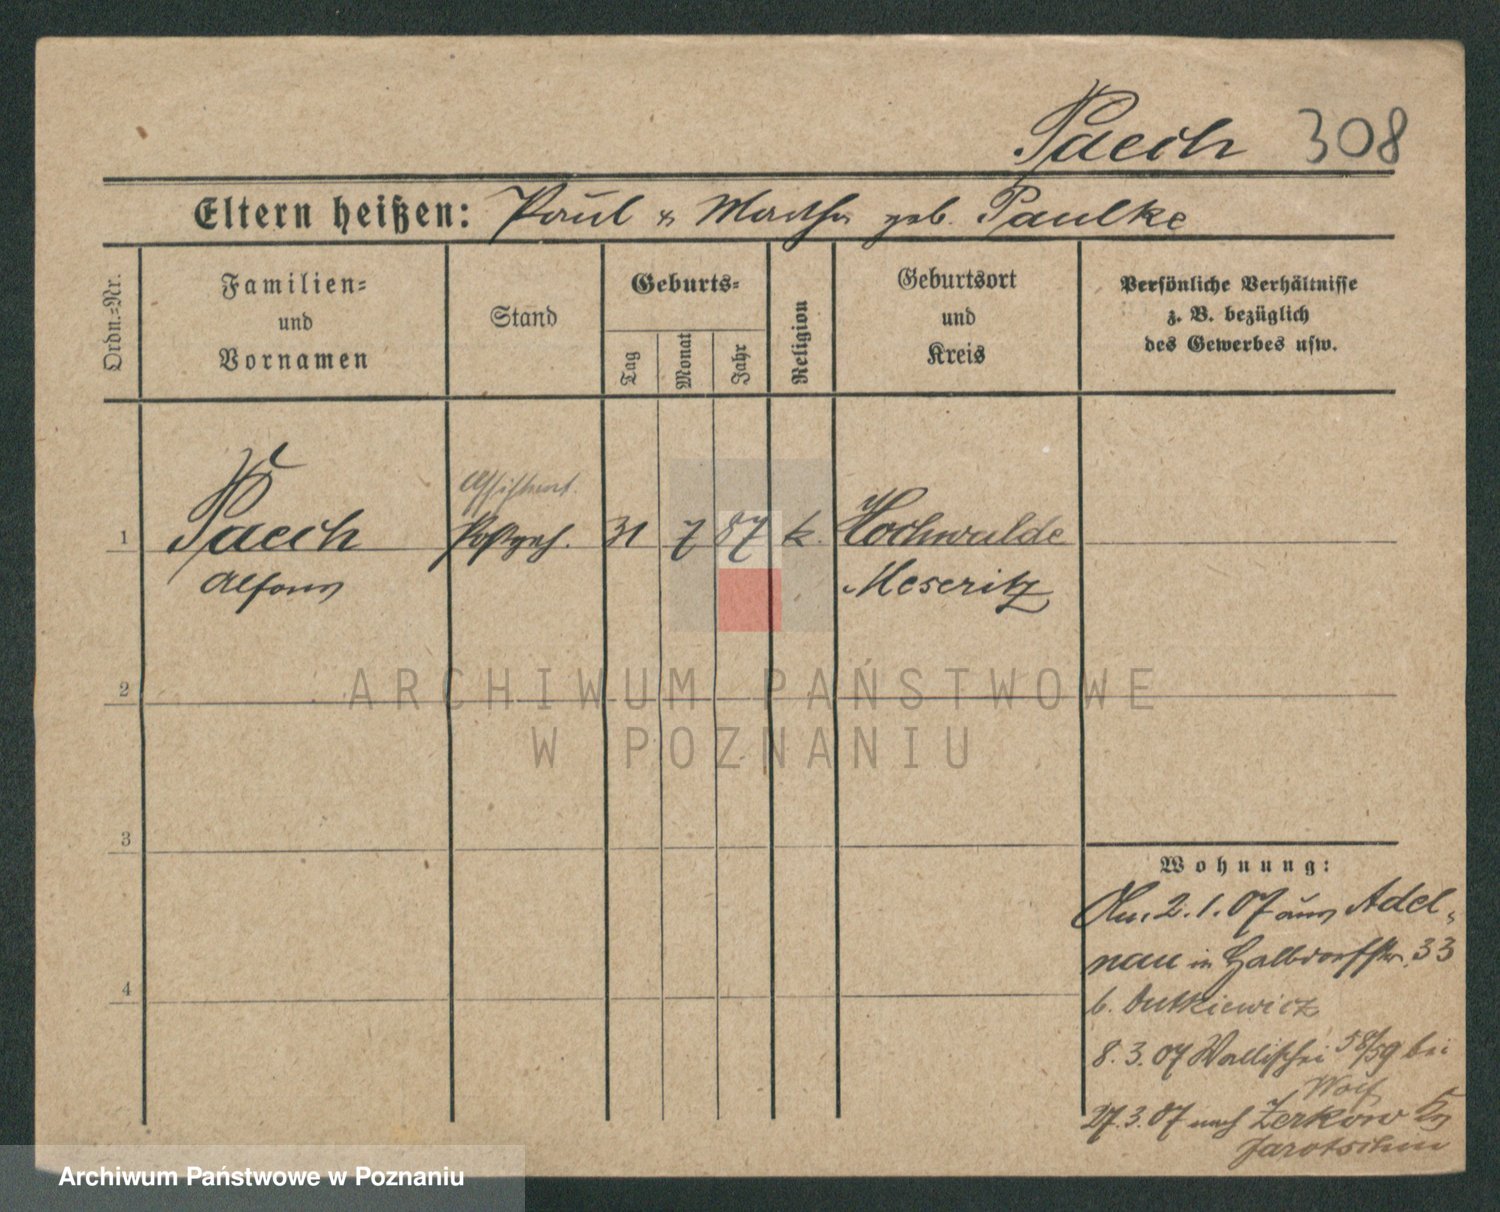 Paech 308
Eltern heißen: Paul & Martha geb. Paulke
Ordn.-Nr.
Familien-
und
Vornamen
Stand
Geburts-
Tag
Monat
Jahr
Religion
Geburtsort
und
Kreis
Persönliche Verhältnisse
z. B. bezüglich
des Gewerbes usw.
Assistent.
1 Paech Postgeh. 31 7 87 k. Hochwalde
Alfons Meseritz
2
ARCHIWUM PAŃSTWOWE
W POZNANIU
3
Wohnung:
2.1.07 aus Adel-
nau in Halbdorfstr. 33
4
b. Dutkiewicz
8.3.07 Wallischei 58/59 bei
27.3.07 nach Zerkow Krs
Jarotschin
Archiwum Państwowe w Poznaniu